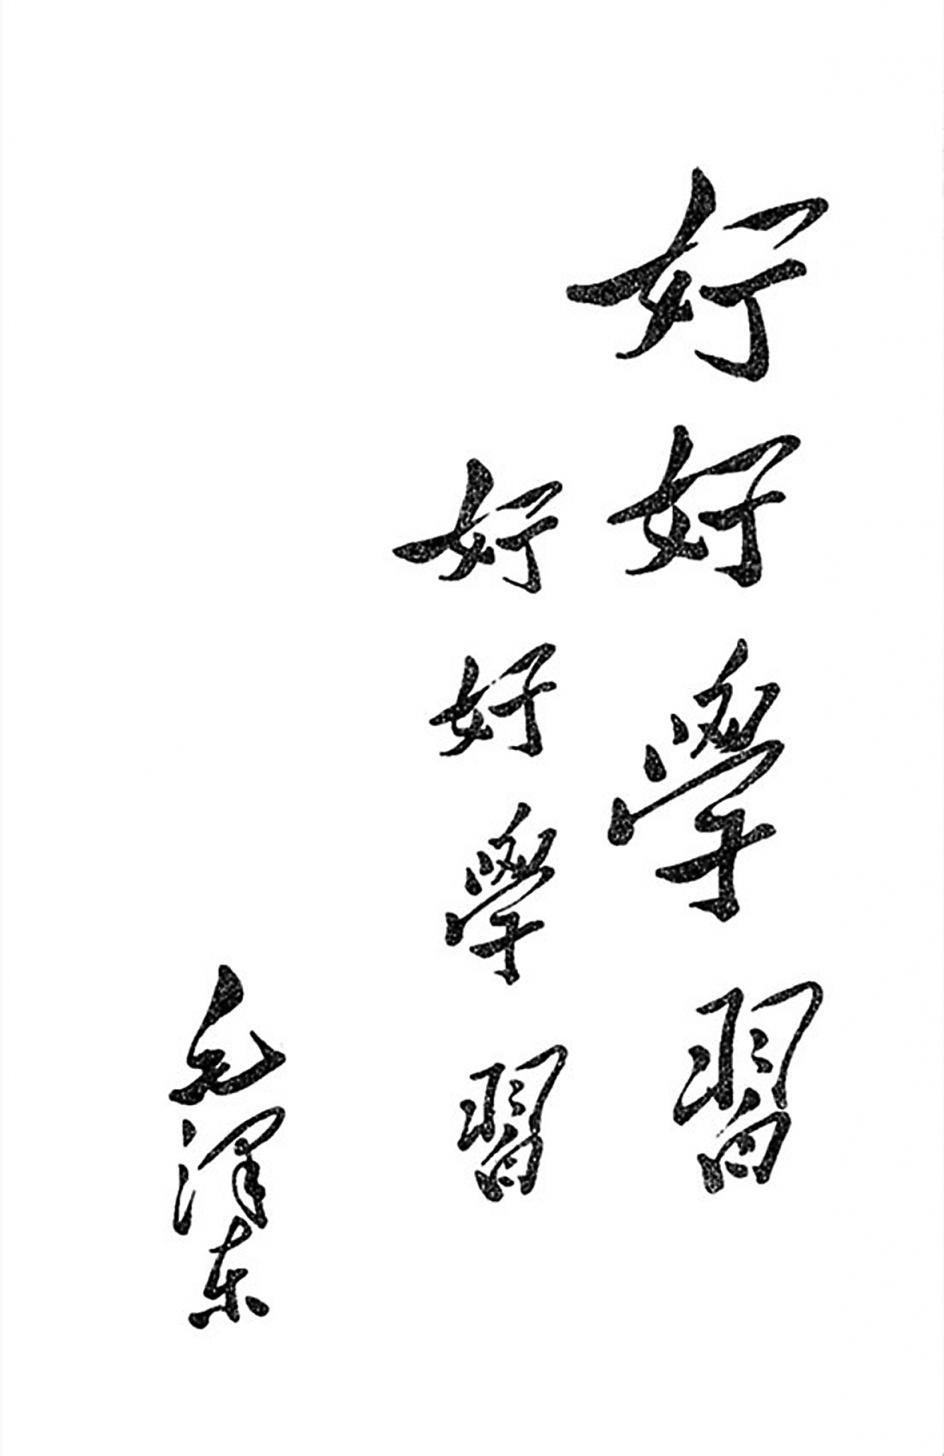 好好學習
好好學習
毛泽东